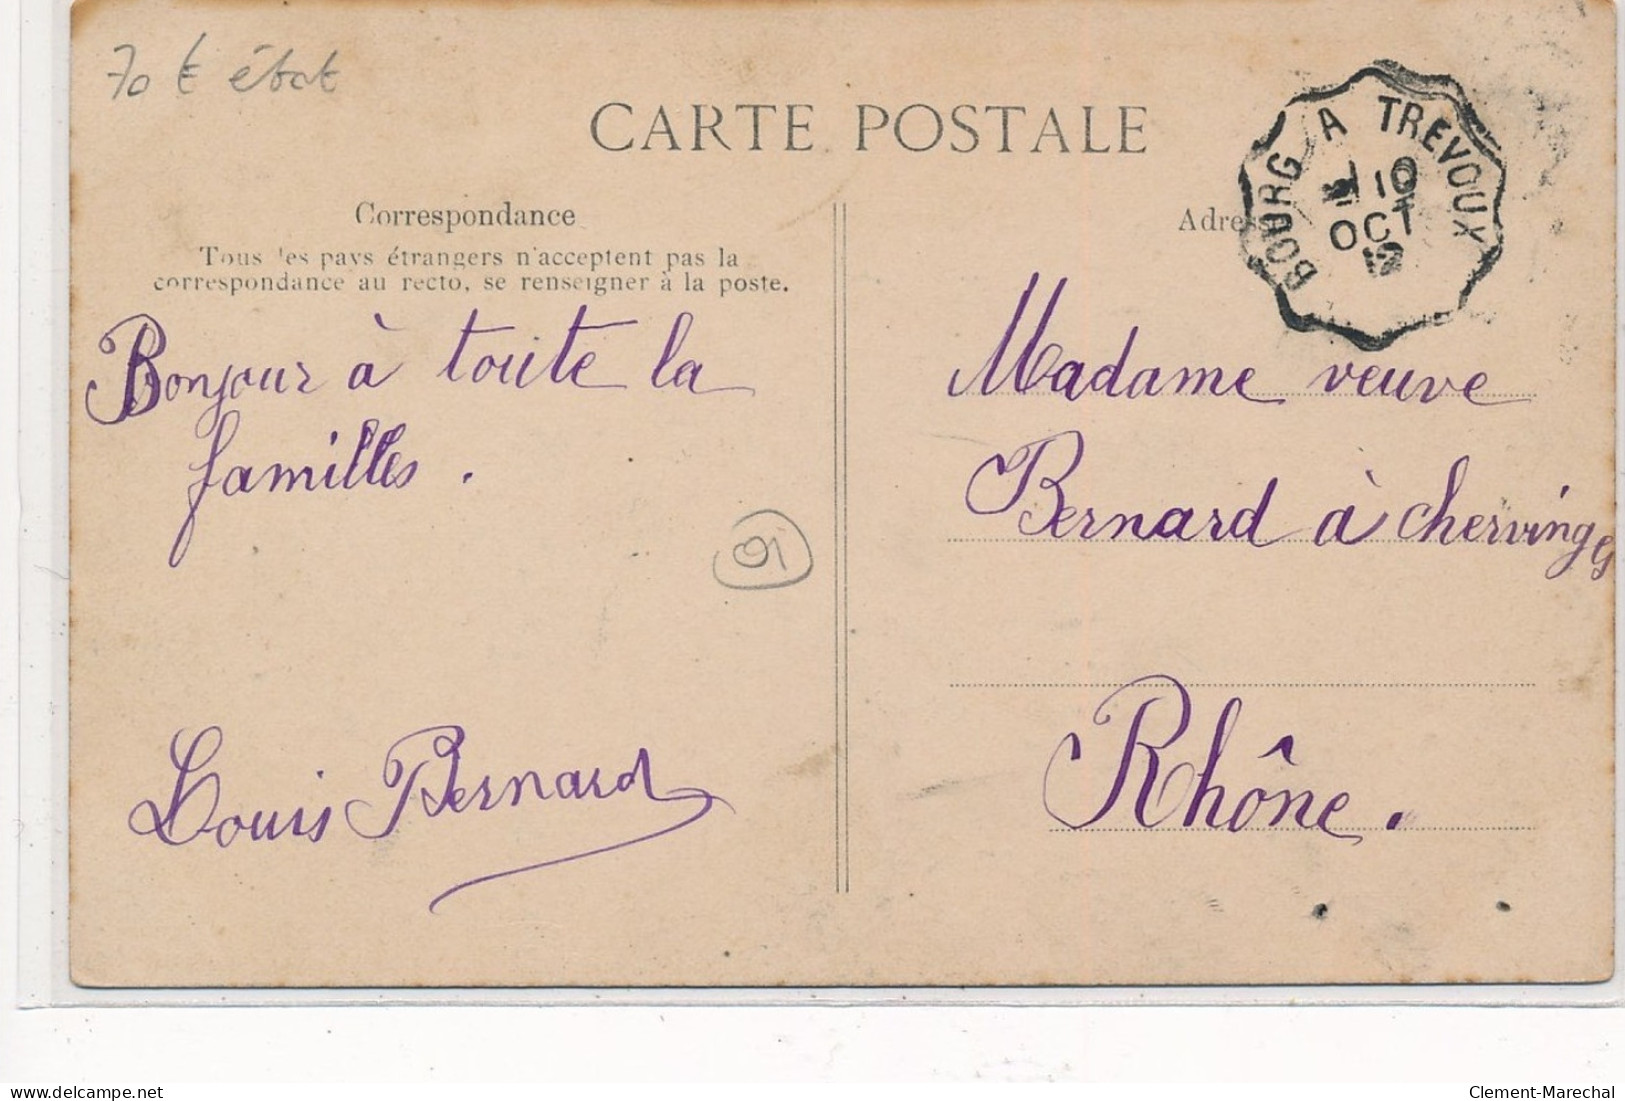 70 € état
CARTE POSTALE
BOURG A TREVOUX
10
OCT
12
Correspondance
Tous les pays étrangers n'acceptent pas la
correspondance au recto, se renseigner à la poste.
Adresse
Bonjour à toute la
familles.
01
Louis Bernard
Madame veuve
Bernard à chervinges
Rhône.
delcampe.net
Clement-Marechal